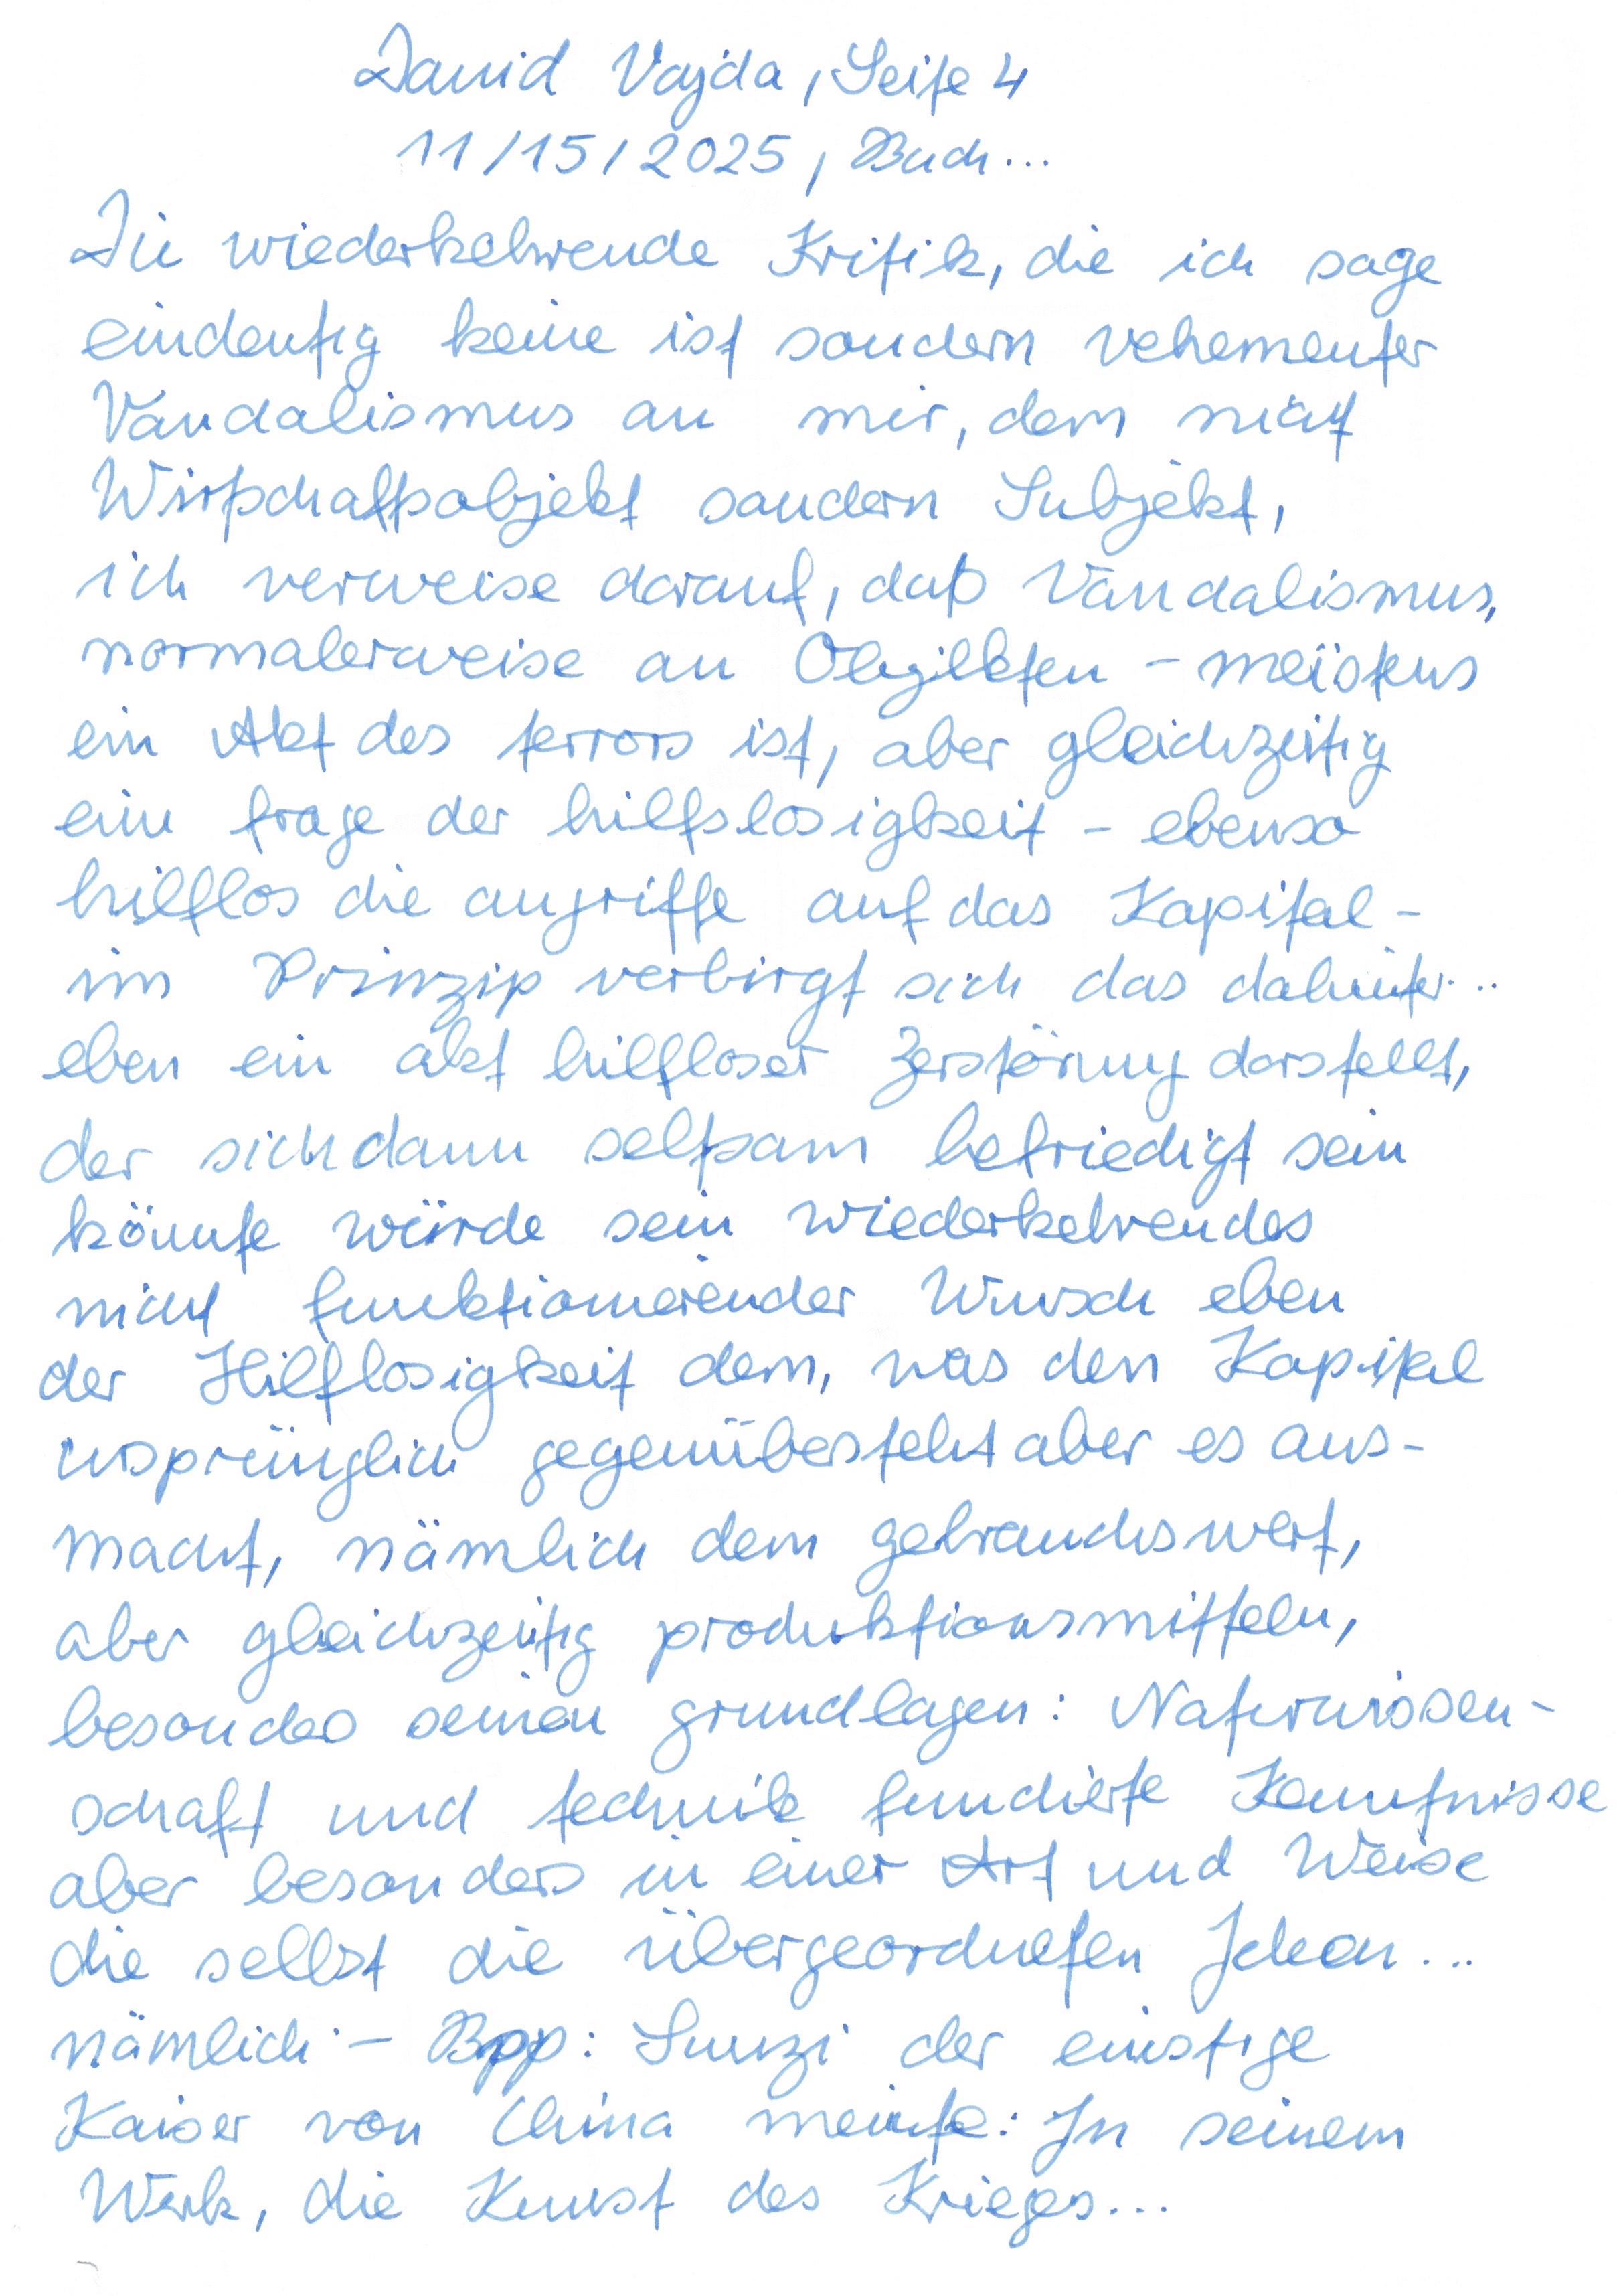 David Vajda, Seite 4
11/15/2025, Buch...
Die wiederkehrende Kritik, die ich sage
eindeutig keine ist sondern vehementer
Vandalismus an mir, dem nicht
Wirtschaftsobjekt sondern Subjekt,
ich verweise darauf, daß Vandalismus,
normalerweise an Objekten - meistens
ein Akt des terrors ist, aber gleichzeitig
eine frage der hilfslosigkeit - ebenso
hilflos die angriffe auf das Kapital -
im Prinzip verbirgt sich das dahinter...
eben ein akt hilfloser Zerstörung darstellt,
der sich dann seltsam befriedigt sein
könnte würde sein wiederkehrendes
nicht funktionierender Wunsch eben
der Hilflosigkeit dem, was den Kapital
ursprünglich gegenübersteht aber es aus-
macht, nämlich dem gebrauchswert,
aber gleichzeitig produktionsmitteln,
besondes seinen grundlagen: Naturwissen-
schaft und technik fundierte Kenntnisse
aber besonders in einer Art und Weise
die selbst die übergeordneten Ideen...
nämlich - Bpp: Sunzi der einstige
Kaiser von China meinte: In seinem
Werk, die Kunst des Krieges...